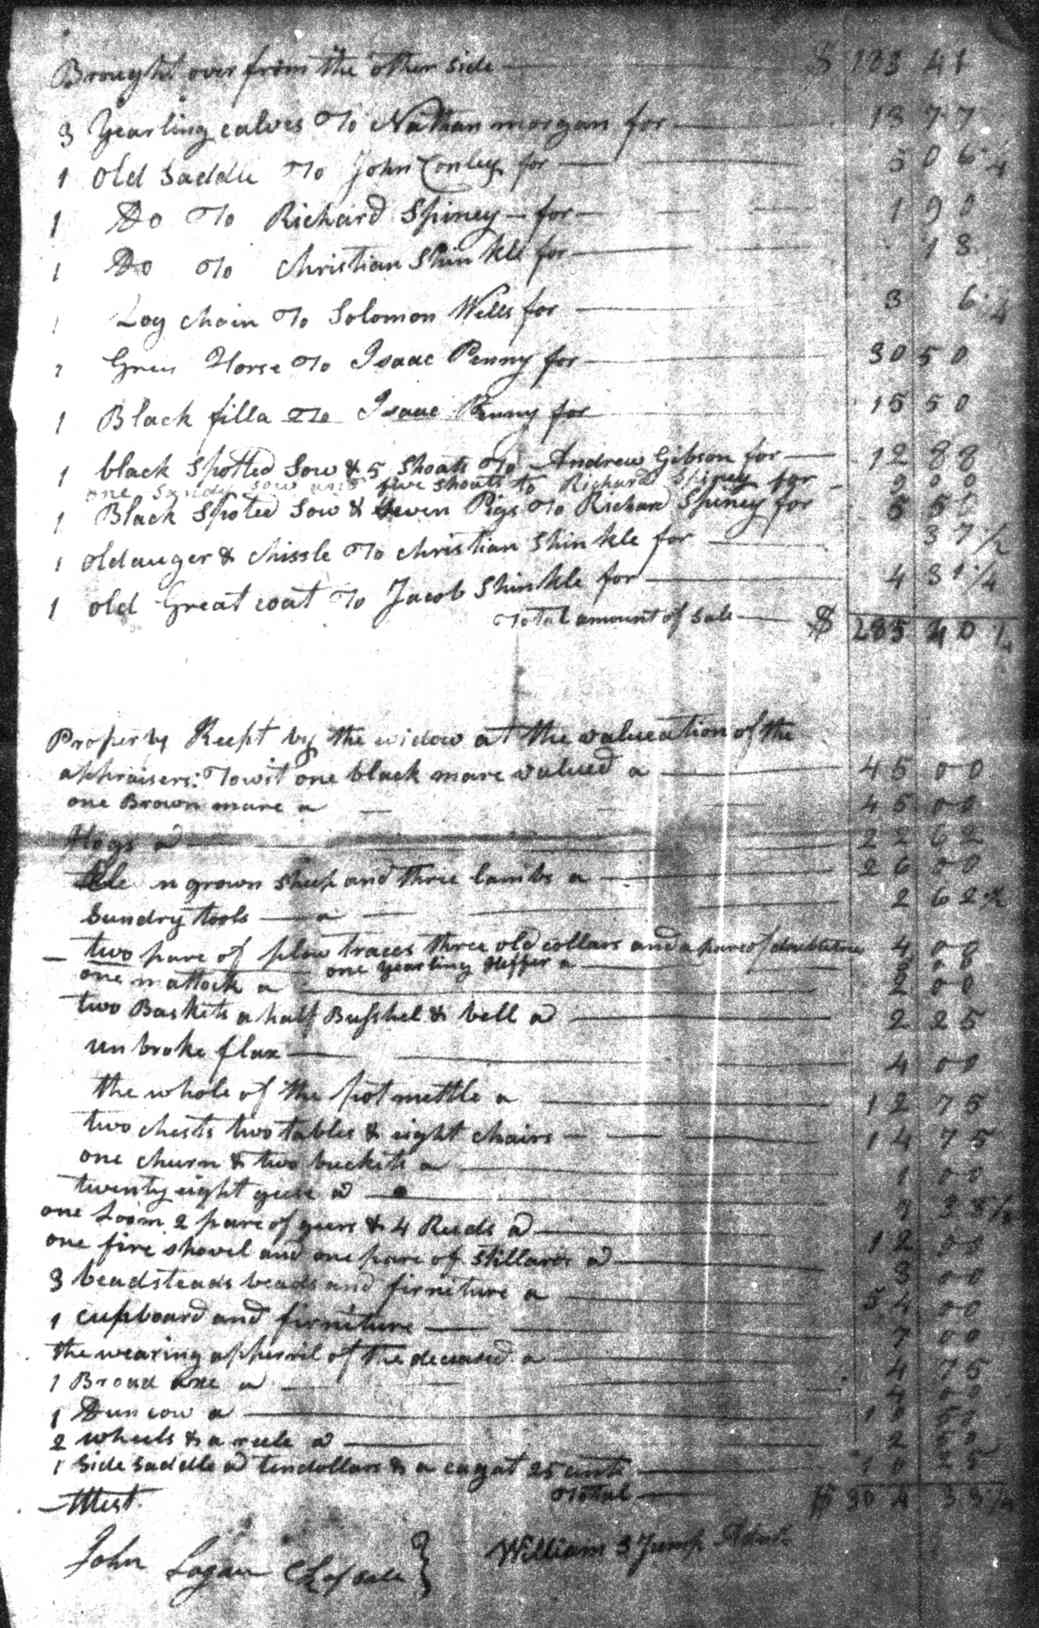 Brought over from the other side $ 183 41
3 Yearling calves To Nathan morgan for 13 77
1 Old Saddle To John Conley for 5 06 1/4
1 Do To Richard Spiney for 1 90
1 Do To Christian Shinkle for 13
1 Log chain To Solomon Wells for 3 6 1/4
Horse To Isaac Penny for 30 50
1 Black filla To Isaac Penny for 15 50
1 black Spotted Sow & 5 Shoats To Andrew Gibson for 12 88
one Sandy sow and five shoats to Richard Spiney for 9 00
1 Black Spoted Sow & Seven Pigs To Richard Spiney for 5 55
1 old auger & chissle To christian Shinkle for 37 1/2
1 old Great coat To Jacob Shinkle for 4 31 1/4
Total amount of Sale $ 285 40 1/4
Property Keept by the widow at the valueation of the
aphraisers: Towit one black mare valued a 45 00
one Brown mare a 45 00
Hogs a 22 62
grown sheep and three lambs a 26 00
Sundry tools a 2 62 1/2
two pare of plow traces three old collars and a pare of doubletree 4 00
one yearling Heffer a
one mattock a 2 00
two Baskets a half Bushel & bell a 2 25
un broke flax 4 00
the whole of the pot mettle a 12 75
two chests two tables & eight chairs 14 75
one churn & two buckets a 1 00
twenty eight geese a
one Loom 2 pare of geers & 4 Reeds a 12 00
one fire shovel and one pare of Stillards a 3 00
3 beadsteads beads and firniture a 54 00
1 cupboard and firniture 7 00
the wearing apherril of the deceased a 4 75
1 Broad axe a 4 00
1 Dun cow a 50
2 wheels & a reele a 2 50
1 Side Saddle a tendollars & a cag at 25 cents 10 25
Total $ 304 33 1/4
Attest
John Logan Clk of sale } William S Jump Admr.